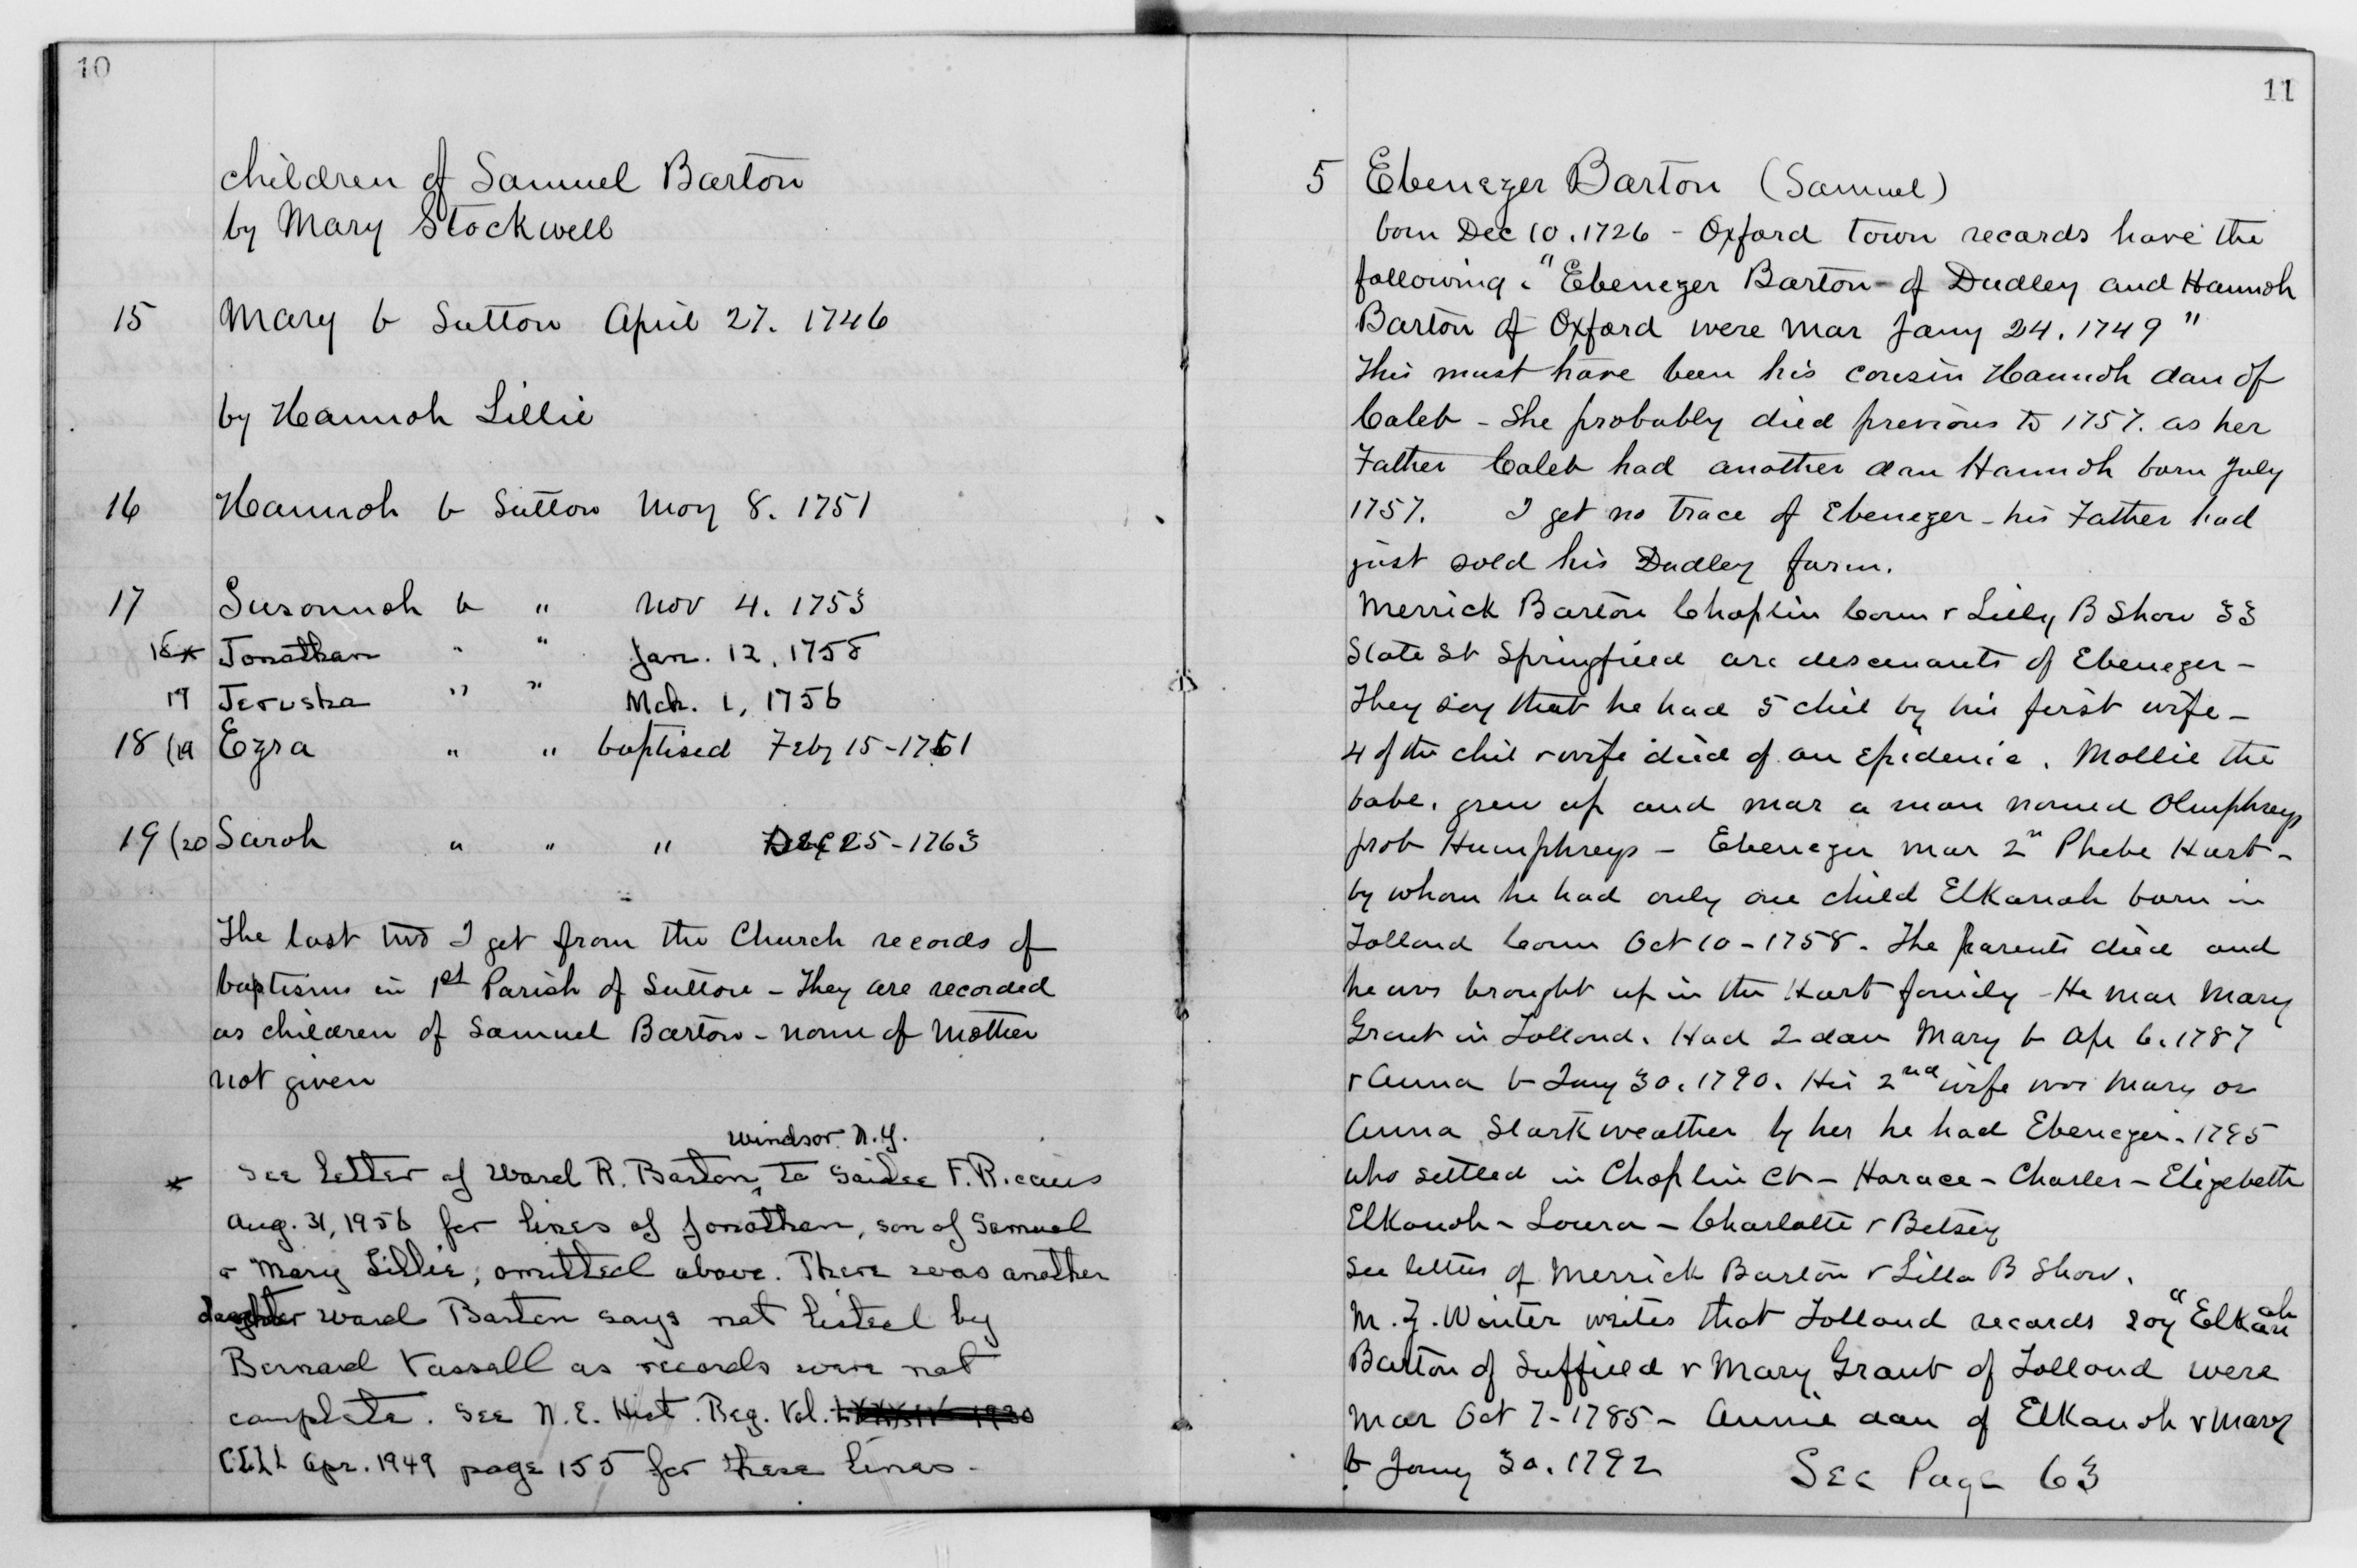 10
children of Samuel Barton
by Mary Stockwell
15 Mary b Sutton April 27. 1746
by Hannah Lillie
16 Hannah b Sutton May 8. 1751
17 Susannah b " Nov 4. 1753
18* Jonathan " " Jan. 12, 1758
19 Jerusha " " Mch. 1, 1756
18 (19 Ezra " " baptised Feby 15-1761
19 (20 Sarah " " " Dec 25-1763
The last two I get from the Church records of
baptisms in 1st Parish of Sutton - They are recorded
as children of Samuel Barton - name of Mother
not given
Windsor N.Y.
* See letter of Ward R. Barton, to Saidee F. Riccius
Aug. 31, 1956 for lines of Jonathan, son of Samuel
& Mary Lillie, omitted above. There was another
daughter Ward Barton says not listed by
Bernard Vassall as records were not
complete. See N.E. Hist. Reg. Vol. LXXXIV 1930
Apr. 1949 page 155 for these lines.
11
5 Ebenezer Barton (Samuel)
born Dec 10. 1726 - Oxford town records have the
following. "Ebenezer Barton of Dudley and Hannah
Barton of Oxford were mar Jany 24. 1749"
This must have been his cousin Hannah dau of
Caleb - She probably died previous to 1757. as her
Father Caleb had another dau Hannah born July
1757. I get no trace of Ebenezer - his Father had
just sold his Dudley farm.
Merrick Barton Chaplin Conn & Lilly B Shaw 33
State St Springfield are descenants of Ebenezer -
They say that he had 5 chil by his first wife -
4 of the chil & wife died of an Epidemic. Mollie the
babe. grew up and mar a man named Olmphreys
prob Humphreys - Ebenezer mar 2n Phebe Hart -
by whom he had only one child Elkanah born in
Tolland Conn Oct 10-1758. The parents died and
he was brought up in the Hart family - He mar Mary
Grant in Tolland. Had 2 dau Mary b Ap 6. 1787
& Anna b Jany 30. 1790. His 2nd wife was Mary or
Anna Starkweather by her he had Ebenezer. 1795
who settled in Chaplin Ct - Horace - Charles - Elizebeth
Elkanah - Loura - Charlotte & Betsey
See letters of Merrick Barton & Lilla B Shaw.
M. F. Winter writes that Tolland records say "Elkanah
Barton of Suffield & Mary Grant of Tolland were
mar Oct 7-1785 - Annie dau of Elkanah & Mary
b Jany 30. 1792 See Page 63